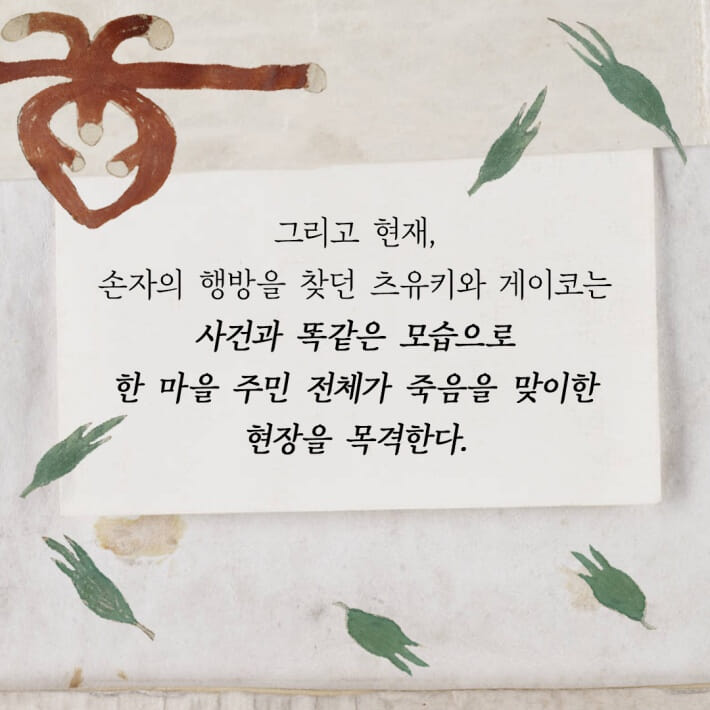 그리고 현재,
손자의 행방을 찾던 츠유키와 게이코는
사건과 똑같은 모습으로
한 마을 주민 전체가 죽음을 맞이한
현장을 목격한다.